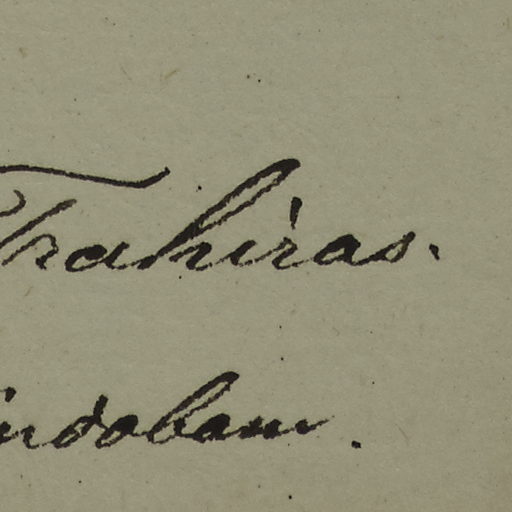 Trahiras.
indobam.